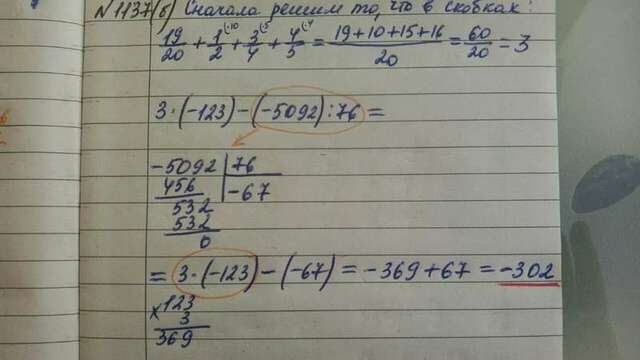 N 1137(б) Сначала решим то, что в скобках:
19/20 + 1/2 (·10 + 3/4 (·5 + 4/5 (·4 = 19+10+15+16/20 = 60/20 = 3
3·(-123)-(-5092):76=
-5092 | 76
456 | -67
532
532
0
= 3·(-123)-(-67) = -369+67 = -302
×123
3
369